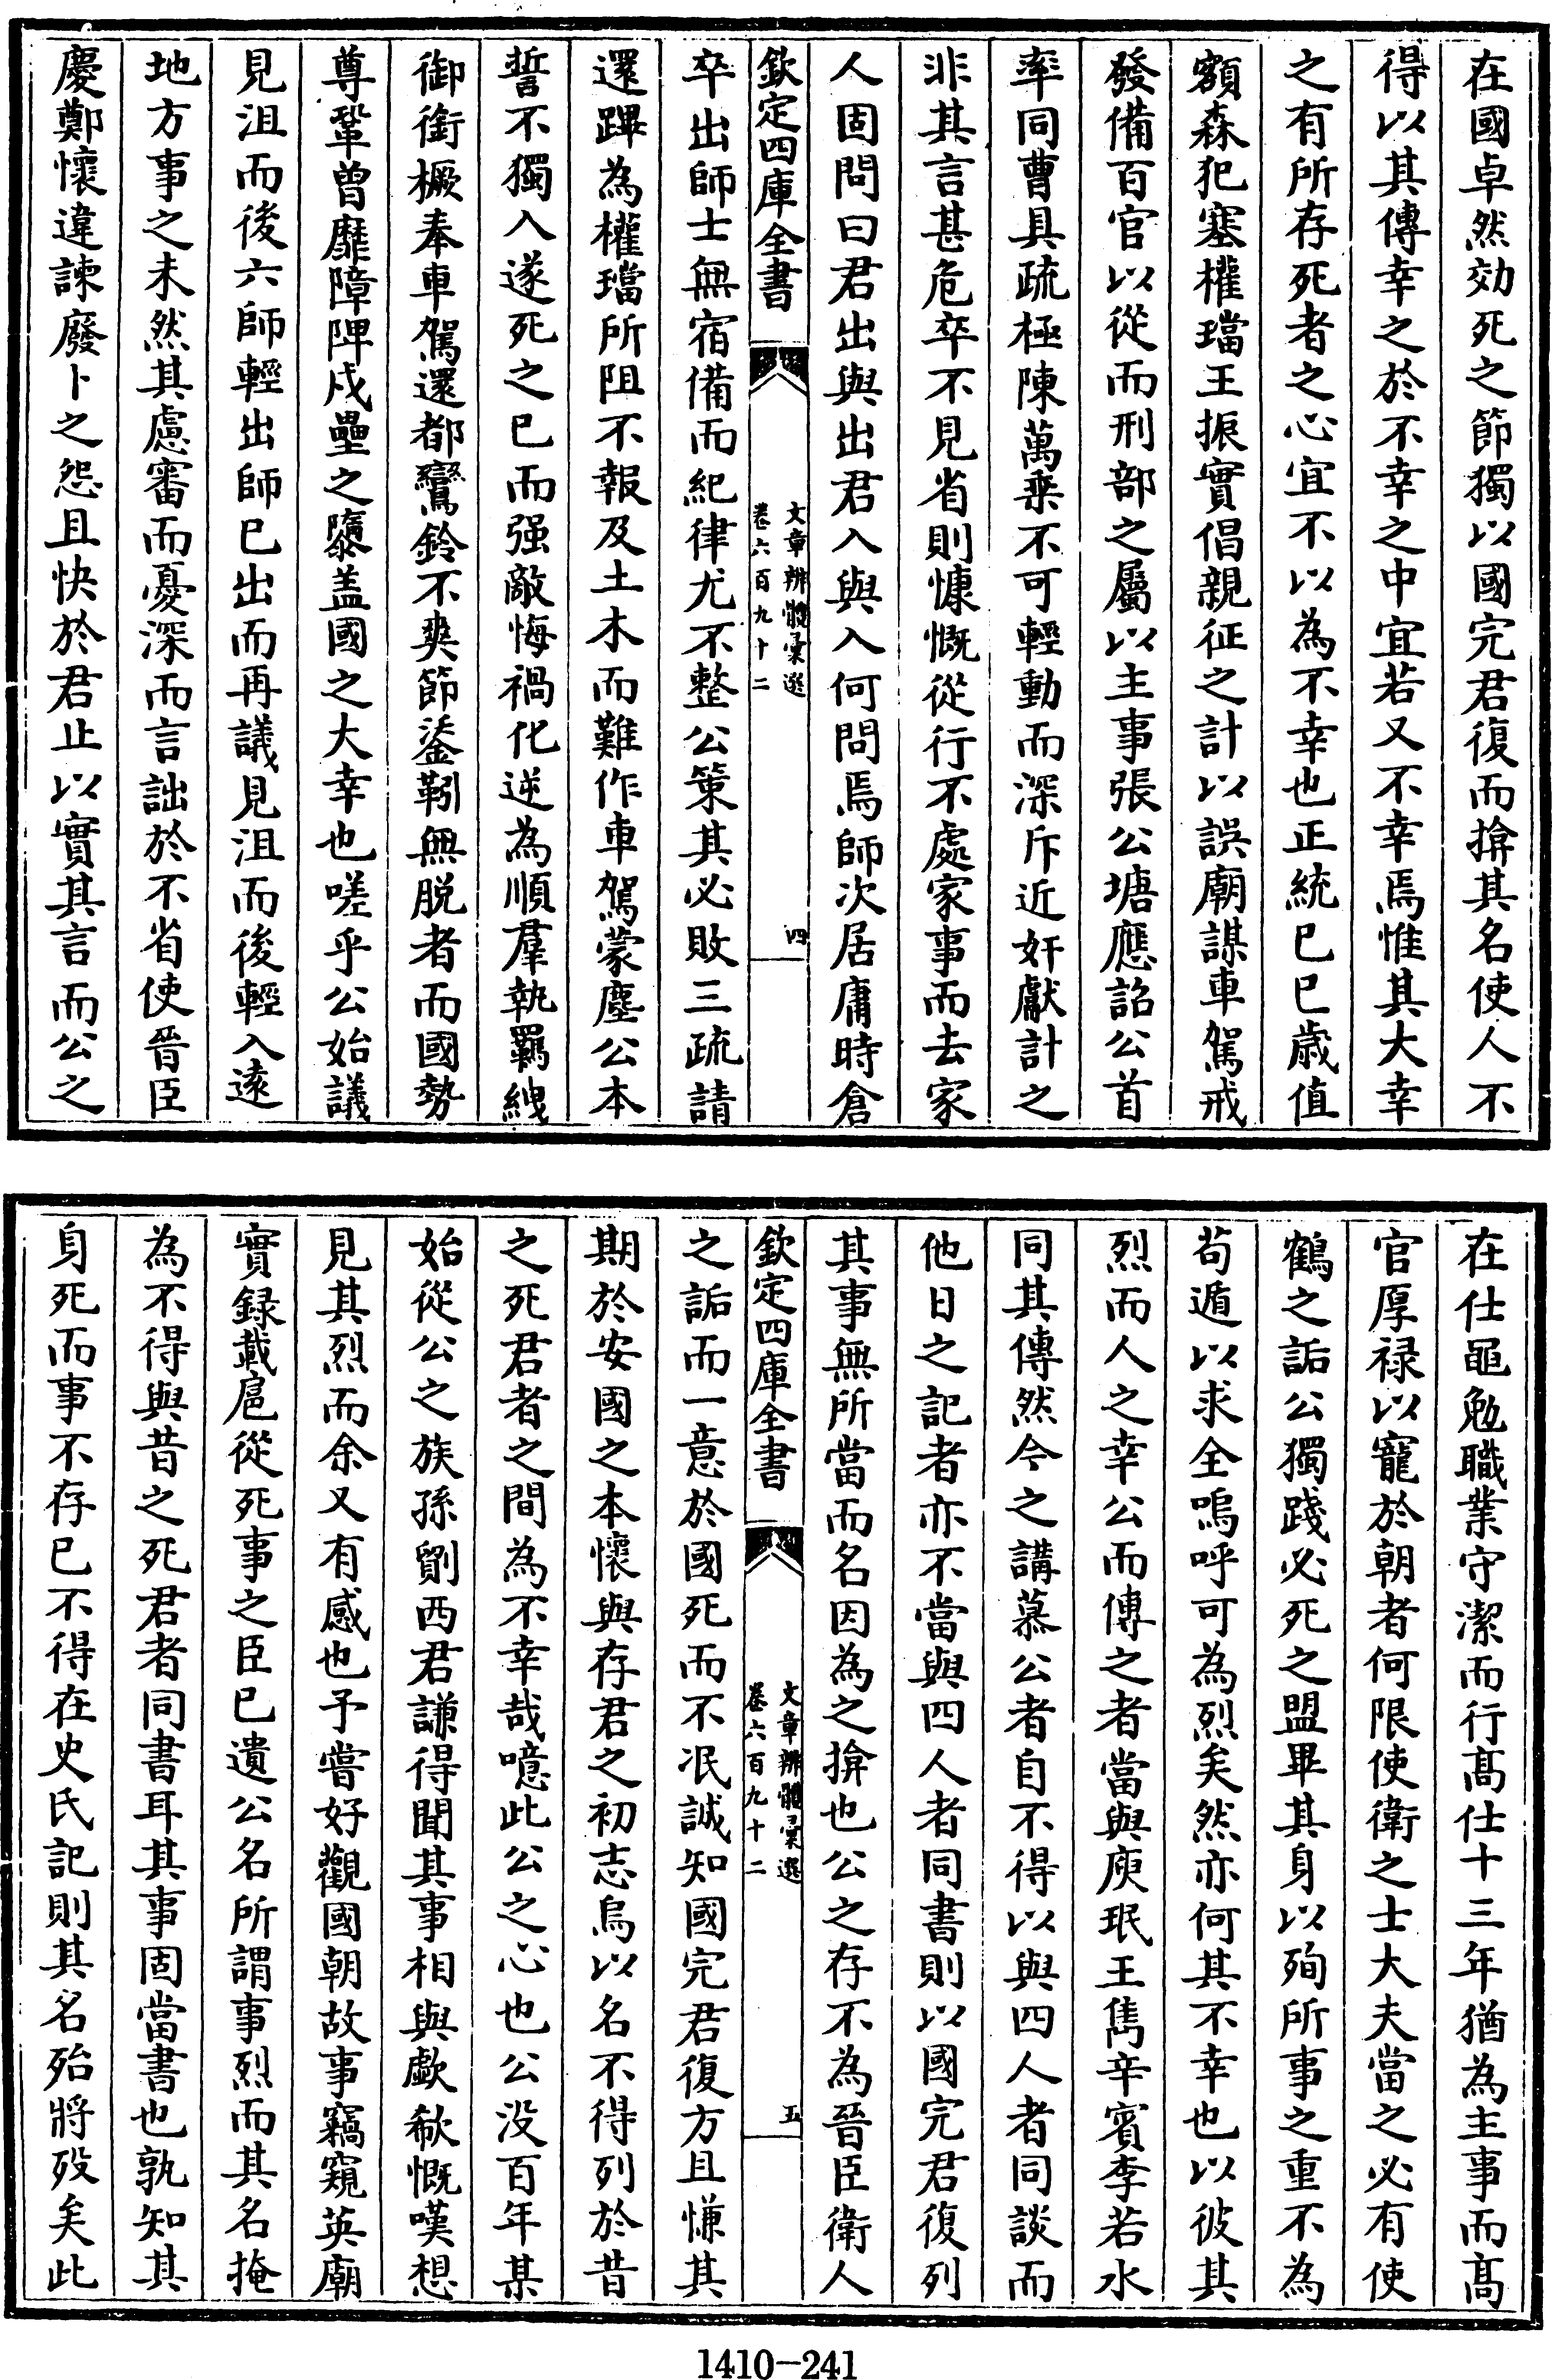 在國卓然効死之節獨以國完君復而揜其名使人不
得以其傳幸之於不幸之中宜若又不幸焉惟其大幸
之有所存死者之心宜不以為不幸也正統巳巳歲值
額森犯塞權璫王振實倡親征之計以誤廟謀車駕戒
發備百官以從而刑部之屬以主事張公塘應詔公首
率同曹具疏極陳萬乘不可輕動而深斥近奸獻計之
非其言甚危卒不見省則慷慨從行不處家事而去家
人固問曰君出與出君入與入何問焉師次居庸時倉
欽定四庫全書
文章辨體彚選
卷六百九十二
四
卒出師士無宿備而紀律尤不整公策其必敗三疏請
還蹕為權璫所阻不報及土木而難作車駕蒙塵公本
誓不獨入遂死之已而强敵悔禍化逆為順羣執羈絏
御銜橛奉車駕還都鸞鈴不爽節鋈靷無脱者而國勢
尊鞏曽靡障陴戍壘之隳盖國之大幸也嗟乎公始議
見沮而後六師輕出師已出而再議見沮而後輕入逺
地方事之未然其慮審而憂深而言詘於不省使晉臣
慶鄭懷違諫廢卜之怨且快於君止以實其言而公之
在仕黽勉職業守潔而行髙仕十三年猶為主事而髙
官厚禄以寵於朝者何限使衛之士大夫當之必有使
鶴之詬公獨踐必死之盟畢其身以殉所事之重不為
苟遁以求全嗚呼可為烈矣然亦何其不幸也以彼其
烈而人之幸公而傳之者當與庾珉王雋辛賓李若水
同其傳然今之講慕公者自不得以與四人者同談而
他日之記者亦不當與四人者同書則以國完君復列
其事無所當而名因為之揜也公之存不為晉臣衛人
欽定四庫全書
文章辨體彚選
卷六百九十二
五
之詬而一意於國死而不泯誠知國完君復方且慊其
期於安國之本懷與存君之初志烏以名不得列於昔
之死君者之間為不幸哉噫此公之心也公没百年某
始從公之族孫劉西君謙得聞其事相與歔欷慨嘆想
見其烈而余又有感也予嘗好觀國朝故事竊窺英廟
實録載扈從死事之臣已遺公名所謂事烈而其名掩
為不得與昔之死君者同書耳其事固當書也孰知其
身死而事不存已不得在史氏記則其名殆將歿矣此
1410-241